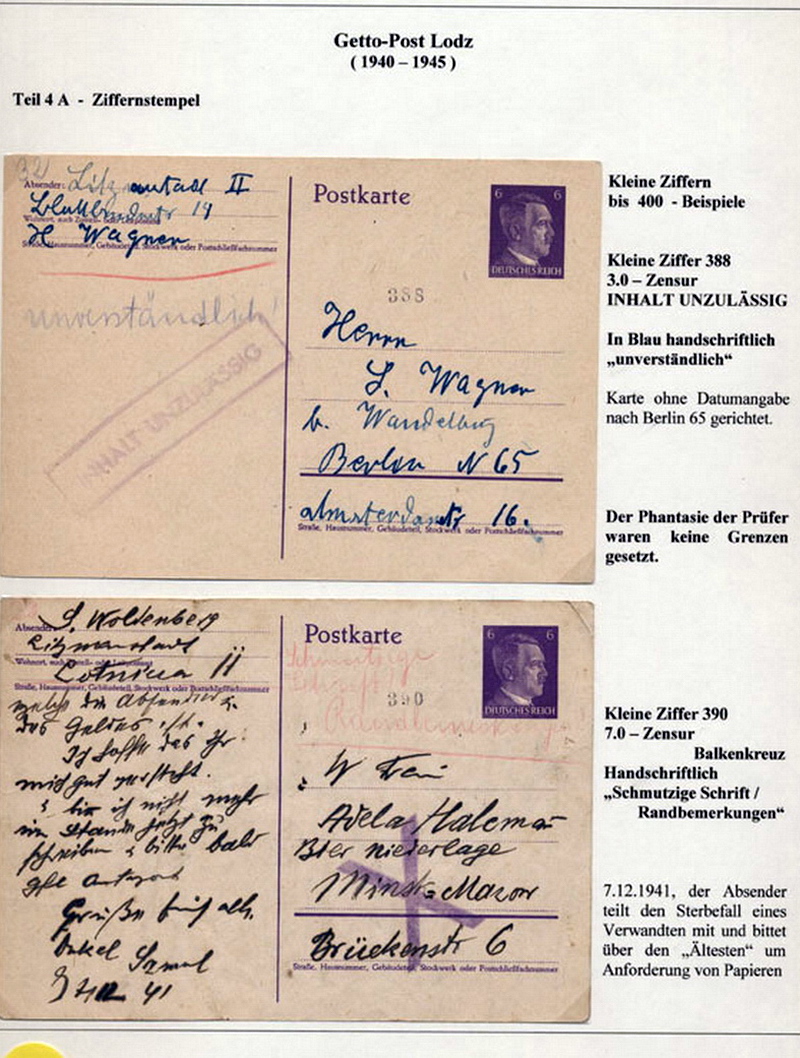 Getto-Post Lodz
( 1940 – 1945 )
Teil 4 A - Ziffernstempel
Kleine Ziffern
bis 400 - Beispiele
Kleine Ziffer 388
3.0 – Zensur
INHALT UNZULÄSSIG
In Blau handschriftlich
„unverständlich“
Karte ohne Datumangabe
nach Berlin 65 gerichtet.
Der Phantasie der Prüfer
waren keine Grenzen
gesetzt.
32
Absender:
Litzmannstadt II
19
H Wagner
Straße, Hausnummer, Gebäudeteil, Stockwerk oder Postschließfachnummer
unverständlich!
INHALT UNZULÄSSIG
Postkarte
6 6
DEUTSCHES REICH
388
Herrn
S. Wagner
b. Wandelburg
Berlin N 65
Amsterdamstr 16.
Straße, Hausnummer, Gebäudeteil, Stockwerk oder Postschließfachnummer
Absender:
S. Woldenberg
Litzmannstadt
Wohnort, auch Zustell- oder Leitpostamt
Lotnicza II
Straße, Hausnummer, Gebäudeteil, Stockwerk oder Postschließfachnummer
des Geldes
Ich hoffe das Ihr
mich gut versteht.
bin ich nicht mehr
im Stande jetzt zu
schreiben & bitte bald
Antwort
Grüße Euch alle
Onkel Szmul
41
Postkarte
6 6
DEUTSCHES REICH
Schmutzige
Schrift!
Randbemerkungen
390
W Frau
Adela Halcman
Bier niederlage
Minsk-Mazow
Brückenstr 6
Straße, Hausnummer, Gebäudeteil, Stockwerk oder Postschließfachnummer
Kleine Ziffer 390
7.0 – Zensur
Balkenkreuz
Handschriftlich
„Schmutzige Schrift /
Randbemerkungen“
7.12.1941, der Absender
teilt den Sterbefall eines
Verwandten mit und bittet
über den „Ältesten“ um
Anforderung von Papieren